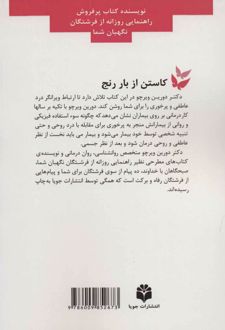 نویسنده کتاب پرفروش
راهنمایی روزانه از فرشتگان
نگهبان شما
کاستن از بار رنج
دکتر دورین ویرچو در این کتاب تلاش دارد تا ارتباط ویرانگر درد
عاطفی و پرخوری را برای شما روشن کند. دورین ویرچو با تکیه بر سالها
کاردرمانی بر روی بیماران نشان می‌دهد که چگونه سوء استفاده فیزیکی
و روانی از بیمارانش منجر به پرخوری برای مقابله با درد روحی و حتی
تنبیه شخصی توسط خود بیمار می‌شود و بیمار می باید نخست از نظر
عاطفی و روحی درمان شود و بعد از نظر جسمی.
دکتر دورین ویرچو متخصص روانشناسی، روان درمانی و نویسنده‌ی
کتاب‌های مطرحی نظیر راهنمایی روزانه از فرشتگان نگهبان شما،
صبحگاهان با خداوند، ده پیام از سوی فرشتگان برای شما و پیام‌هایی
از فرشتگان رفاه و برکت است که همگی توسط انتشارات جویا به‌چاپ
رسیده‌اند.
انتشارات جویا